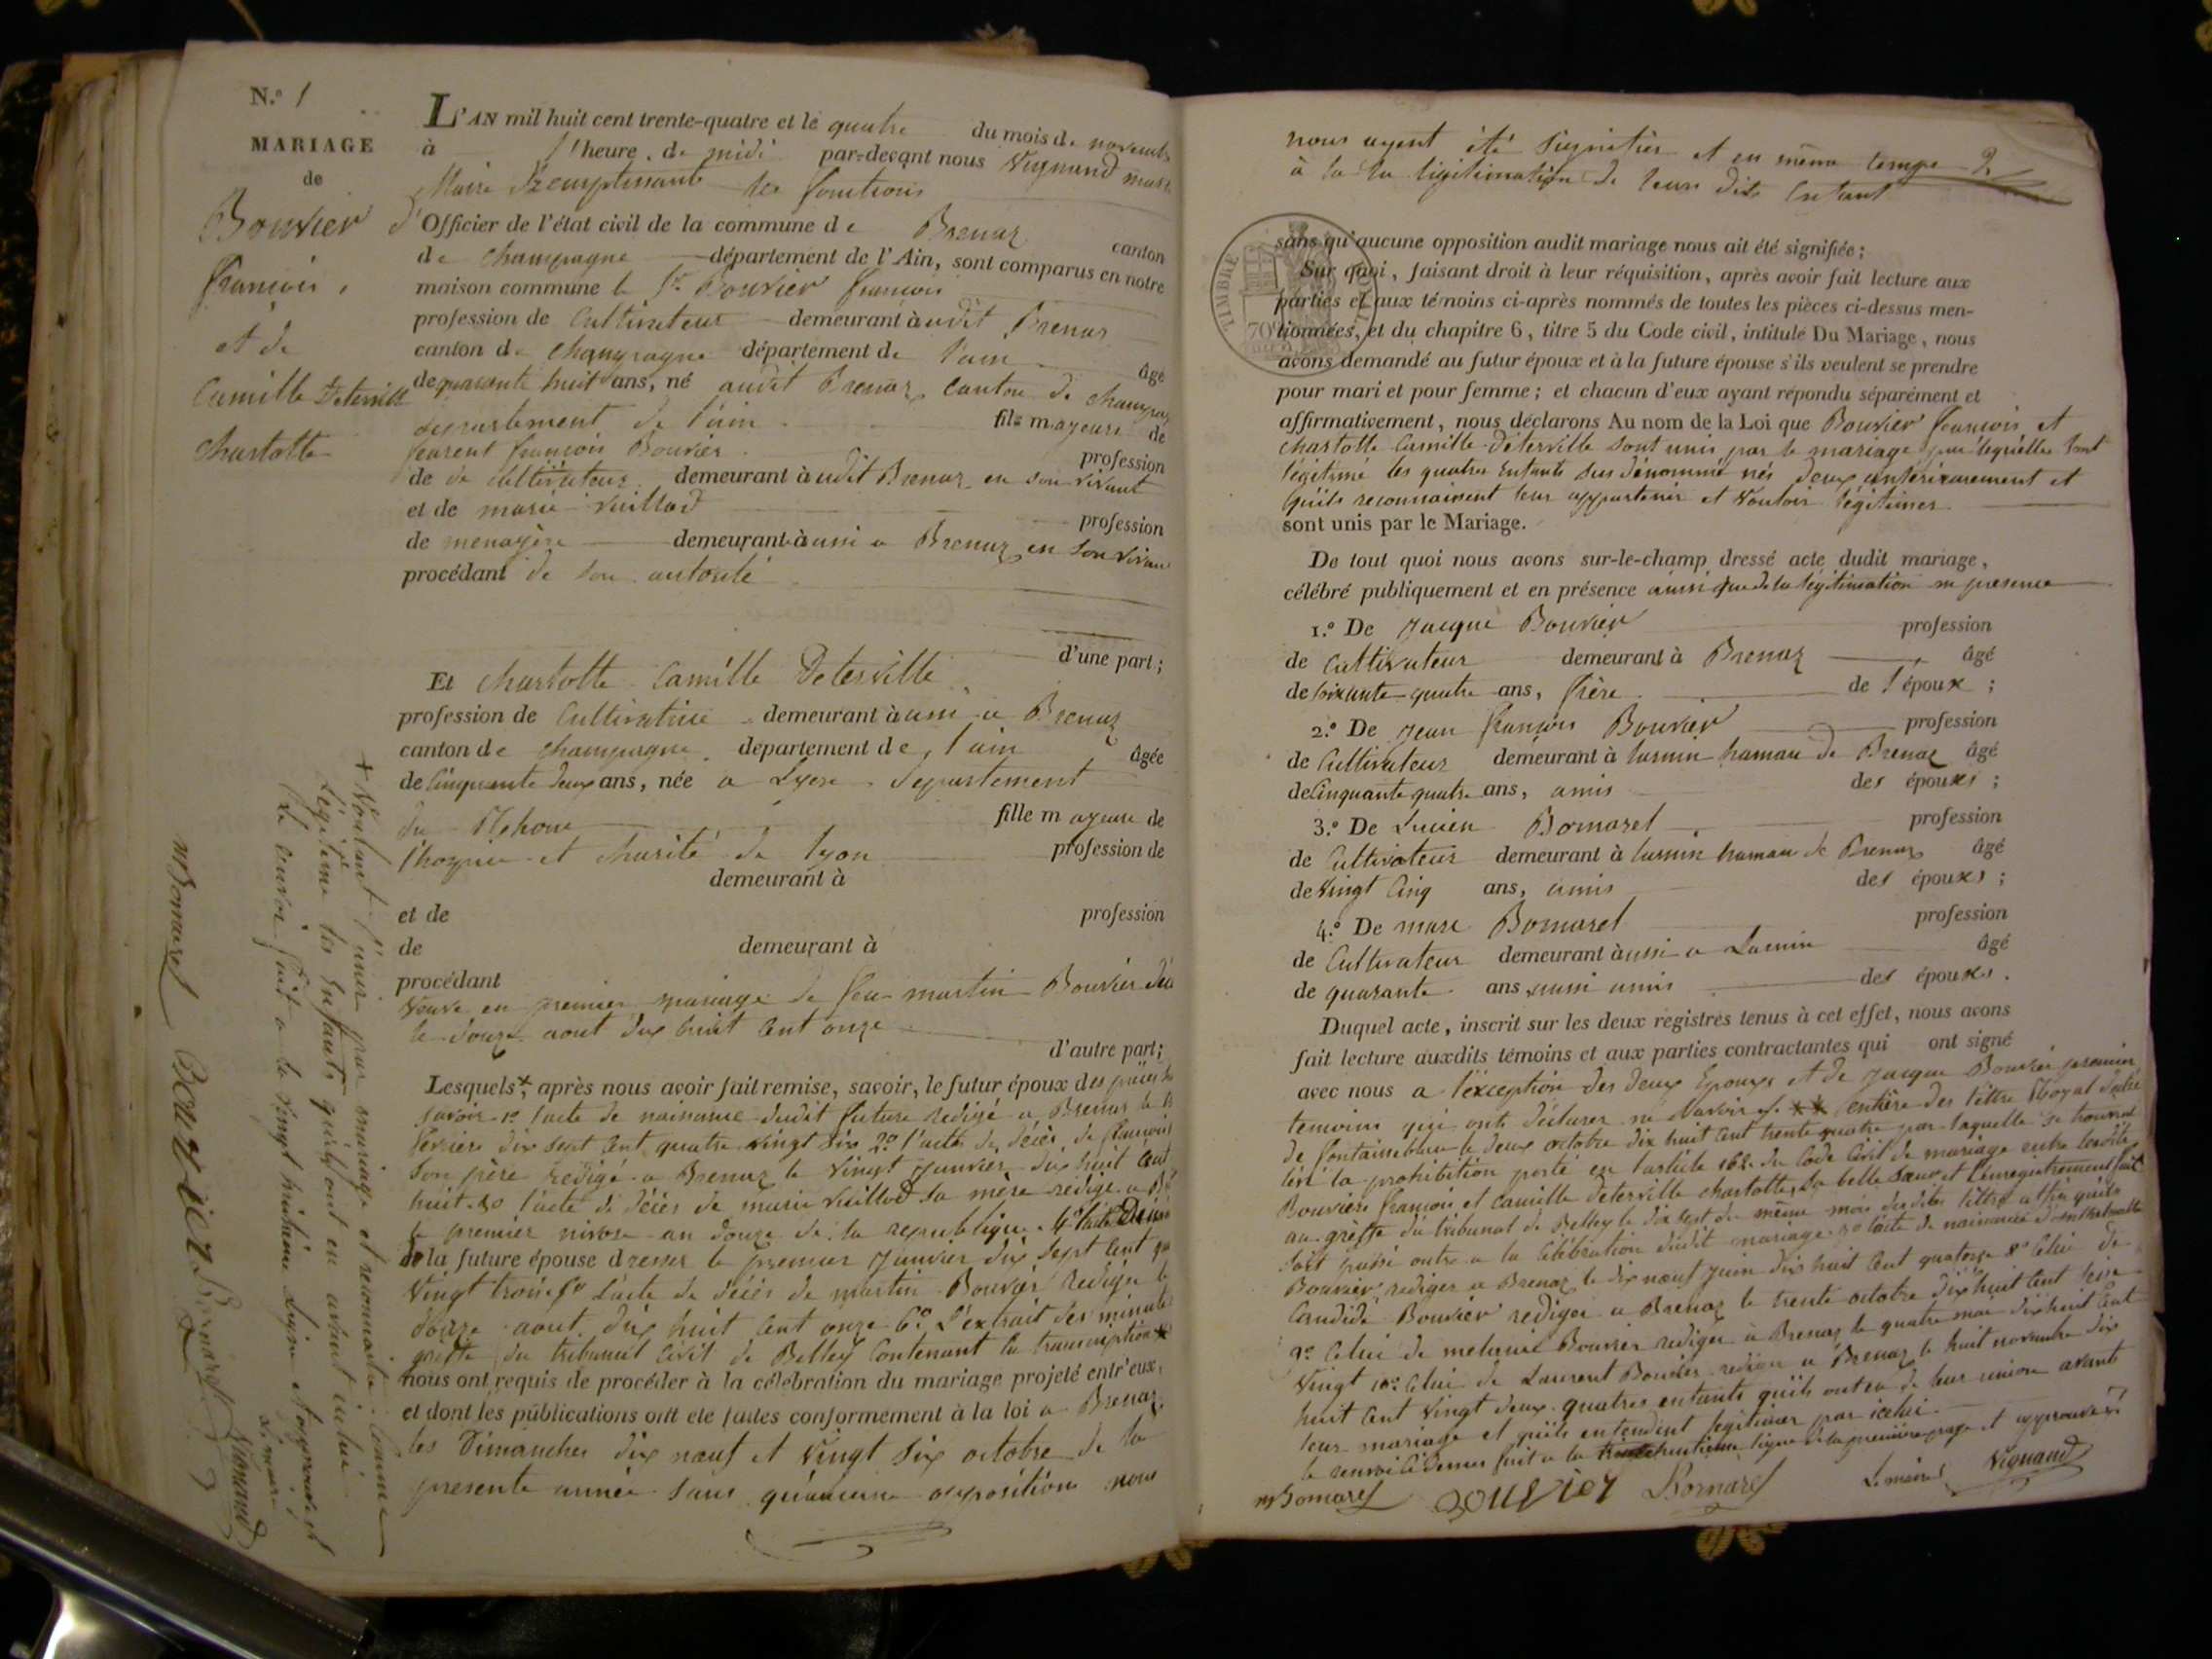 N.º 1
MARIAGE
de
Bouvier
françois,
et de
Camille Deterville
Charlotte
L'AN mil huit cent trente-quatre et le quatre du mois de novembre
à 1 heure de midi par-devant nous Vignand marc
Maire Remplissant les fonctions
d'Officier de l'état civil de la commune de Brenaz canton
de Champagne département de l'Ain, sont comparus en notre
maison commune le Sr. Bouvier françois
profession de Cultivateur demeurant à udit Brenas
canton de Champagne département de l'ain âgé
de quarante huit ans, né audit Brenaz canton de champag
departement de l'ain fils mageurs de
françois Bouvier profession
de de Cultivateur demeurant à udit Brenaz en son vivant
et de marie Vuillod profession
de menagère demeurant à ussi a Brenaz en son vivan
procédant de son autorité
d'une part;
Et Charlotte Camille Deterville
profession de Cultivatrice demeurant à ussi a Brenaz
canton de Champagne département de l'ain âgée
de Cinquante deux ans, née a Lyon departement
du Rhone fille mageure de
l'hospice et charité de lyon profession de
demeurant à
et de profession
de demeurant à
procédant
Veuve en premier mariage de feu martin Bouvier
le douze aout dix huit Cent onze
d'autre part;
Lesquels, après nous avoir fait remise, savoir, le futur époux des pièces
savoir 1º l'acte de naissance dudit future redigé a Brenas le
fevrier dix sept Cent quatre vingt six 2º l'acte de décès de françois
son père redigé a Brenaz le Vingt janvier dix huit Cent
huit 3º l'acte de décès de marie Vuillod sa mère redigé a
le premier nivose an douze de la republique 4º l'acte
de la future épouse dresser le premier janvier dix sept Cent
Vingt trois 5º L'acte de décès de martin Bouvier Redigé le
douze aout dix huit Cent onze 6º L'extrait des minutes
greffe du tribunal Civil de Belley Contenant la transcription
nous ont requis de procéder à la célébration du mariage projeté entr'eux,
et dont les publications ont été faites conformément à la loi a Brenaz
les Dimanches dix neuf et Vingt Six octobre de la
presente année sans qu'aucune opposition nous
+ Voulant s'unir par mariage et reconnaitre Comme
Légitime les Enfants qu'ils ont eu avant celui
Le renvoi fait a la Vingt huitième Ligne et approuvé
Le maire
Vignand
mBomarel Bouvier Bomarel
nous ayent été signifier et en même temps 2
à la la ligitimation de leurs dits Enfant
TIMBRE ROYAL
70c
sans qu'aucune opposition audit mariage nous ait été signifiée;
Sur quoi, faisant droit à leur réquisition, après avoir fait lecture aux
parties et aux témoins ci-après nommés de toutes les pièces ci-dessus men-
tionnées, et du chapitre 6, titre 5 du Code civil, intitulé Du Mariage, nous
avons demandé au futur époux et à la future épouse s'ils veulent se prendre
pour mari et pour femme; et chacun d'eux ayant répondu séparément et
affirmativement, nous déclarons Au nom de la Loi que Bouvier françois et
Charlotte Camille Deterville sont unis par le mariage par lequelles sont
légitimé les quatres Enfants sus dénommé nés deux antérieurement et
qu'ils reconnaissent leur appartenir et Vouloir légitimer
sont unis par le Mariage.
De tout quoi nous avons sur-le-champ dressé acte dudit mariage,
célébré publiquement et en présence ainsi que de la légitimation en presence
1.º De Jacque Bouvier profession
de Cultivateur demeurant à Brenaz âgé
de soixante quatre ans, frère de l'époux;
2.º De Jean françois Bouvier profession
de Cultivateur demeurant à Lusmin hamau de Brenaz âgé
de Cinquante quatre ans, amis des épouxs;
3.º De Lucien Bomarel profession
de Cultivateur demeurant à Lusmin hamau de Brenaz âgé
de Vingt Cinq ans, amis des épouxs;
4.º De marc Bomarel profession
de Cultivateur demeurant à ussi a Lusmin âgé
de quarante ans aussi amis des épouxs.
Duquel acte, inscrit sur les deux registres tenus à cet effet, nous avons
fait lecture auxdits témoins et aux parties contractantes qui ont signé
avec nous a l'exception des deux Epouxs et de Jacque Bouvier premier
temoins qui onts déclarer ne Savoir ** entière des lettre Royal
de fontainebleau le deux octobre dix huit Cent trente quatre par laquelle se trouvent
levé la prohibition porté en l'article 162 du Code Civil de mariage entre lesdits
Bouvier françois et Camille Deterville charlotte, Sa belle Sœur et L'enregistrement fait
au greffe du tribunal de Belley le dix sept du même mois desdites lettre
soit passé outre a la Célébration dudit mariage 7º l'acte de naissance
Bouvier rediger a Brenaz le dix neuf juin dix huit Cent quatorze 8º Celui de
Candide Bouvier rediger a Brenaz le trente octobre dix huit Cent seize
9º Celui de melanie Bouvier rediger à Brenaz le quatre mar dix huit Cent
Vingt 10º Celui de Laurent Bouvier rediger a Brenaz le huit novembre dix
huit Cent Vingt deux quatres enfants qu'ils ont eu de leur union avant
leur mariage et qu'ils entendent legitimer par icelui
le renvoi Ci dernier fait a la ligne de la première page et approuvés
mBomarel Bouvier Bomarel Le maire Vignand